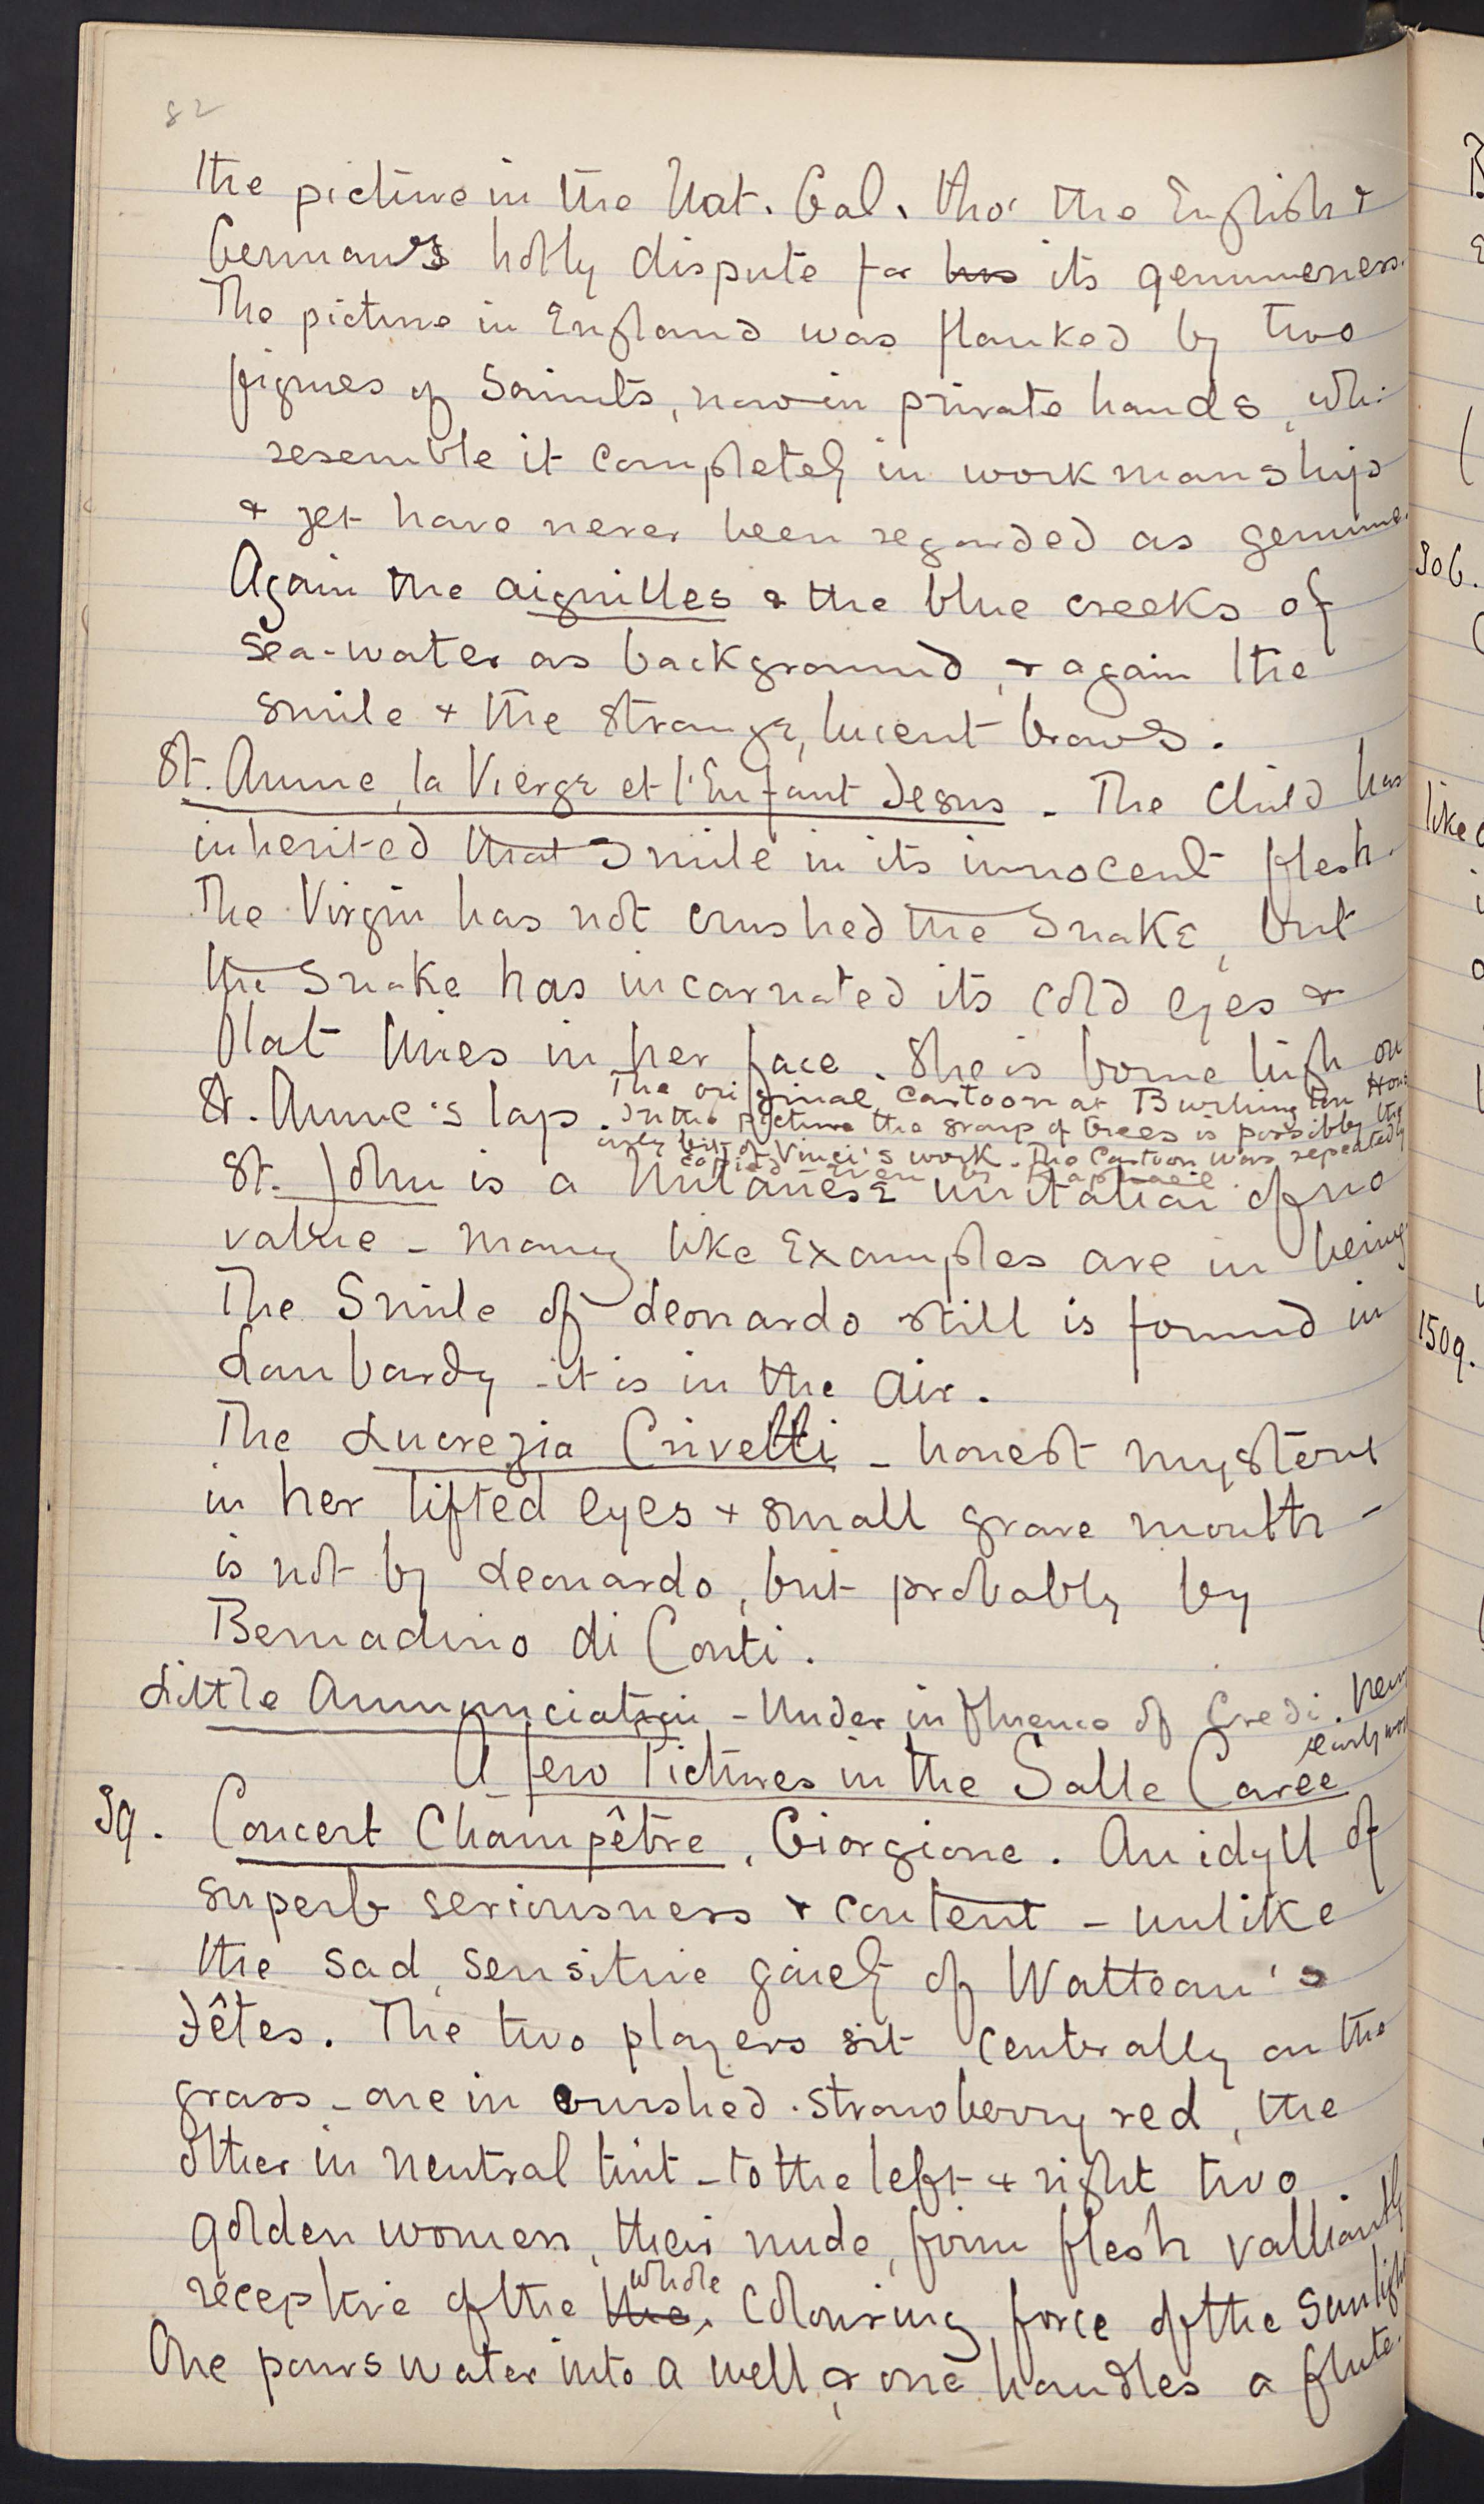 82
the picture in the Nat. Gal. tho' the English &
Germans hotly dispute for his its genuineness.
The picture in England was flanked by two
figures of Saints, now in private hands, whi:
resemble it completely in workmanship
& yet have never been regarded as genuine.
Again the aiguilles & the blue creeks of
sea-water as background, & again the
smile & the strange, lucent brows.
St. Anne, la Vierge et l'Enfant Jesus - The Child has
inherited that Smile in its innocent flesh.
The Virgin has not crushed the Snake, but
the Snake has incarnated its cold eyes &
flat lines in her face. She is borne high on
St. Anne's lap. The original Cartoon at Burlington Hous
In the picture the group of trees is possibly the
only bit of Vinci's work. The Cartoon was repeatedly
copied - even by Raphael.
St. John is a Milanese imitation of no
value - many like Examples are in being
The Smile of Leonardo still is found in
Lombardy - it is in the air.
The Lucrezia Crivelli - honest mystery
in her lifted eyes & small grave mouth -
is not by Leonardo, but probably by
Bernadino di Conti.
Little Annunciation - Under influence of Credi. Very
early wor
A few Pictures in the Salle Carée
39. Concert Champêtre, Giorgione. An idyll of
superb seriousness & content - unlike
the sad, sensitive gaiety of Watteau's
Fêtes. The two players sit centrally on the
grass - one in crushed-strawberry red, the
other in neutral tint - to the left & right two
golden women, their nude, firm flesh valliantly
receptive of the the whole colouring force of the sunlight
One pours water into a well & one handles a flute.
306.
like
1509.